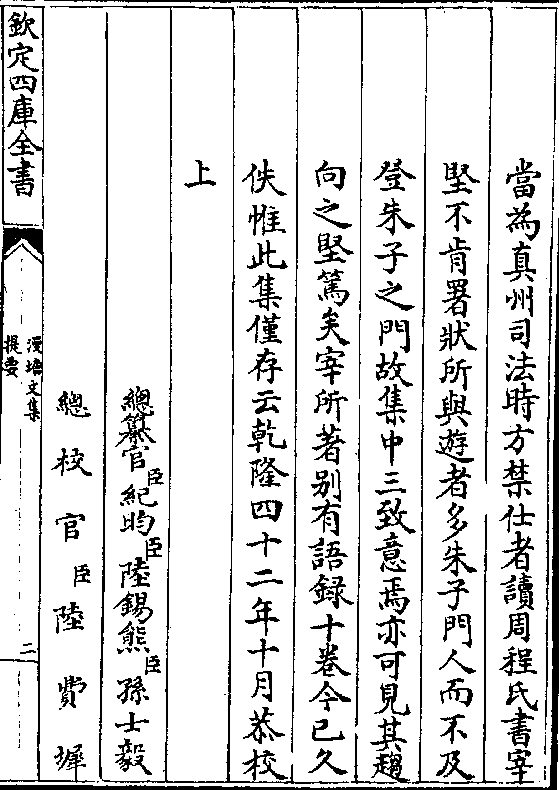 當為真州司法時方禁仕者讀周程氏書宰
堅不肯署狀所與遊者多朱子門人而不及
登朱子之門故集中三致意焉亦可見其趨
向之堅篤矣宰所著别有語録十卷今已久
佚惟此集僅存云乾隆四十二年十月恭校
上
總纂官臣紀昀臣陸錫熊臣孫士毅
總校官臣陸費墀
欽定四庫全書
漫塘文集
提要
二